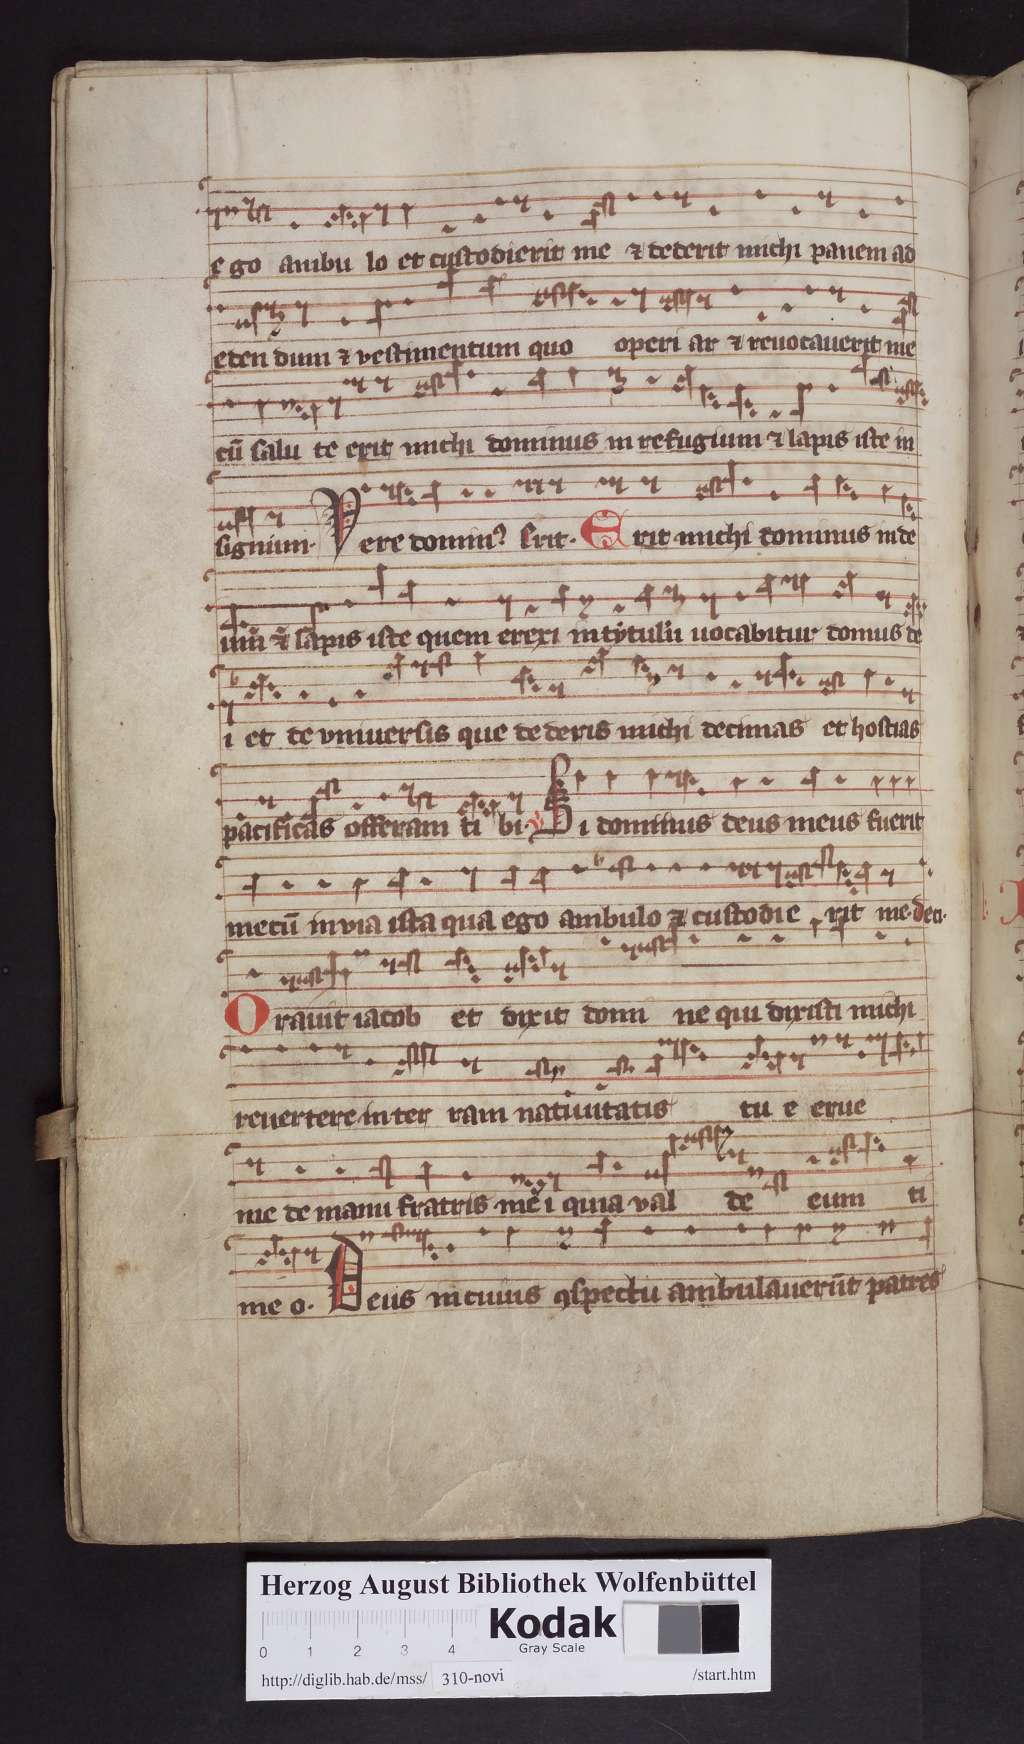 ego ambu lo et custodierit me & dederit michi panem ad
eden dum & vestimentum quo operi ar & reuocauerit me
cū salu te erit michi dominus in refugium & lapis iste in
signum. Vere domin⁹ Erit. Erit michi dominus in de
um & lapis iste quem erexi in tytulū uocabitur domus de
i et de vniuersis que dederis michi decimas et hostias
pacificas offeram ti bi. Si dominus deus meus fuerit
mecū in via ista qua ego ambulo & custodie rit me. deci.
Orauit iacob et dixit domi ne qui dixisti michi
reuertere in ter ram natiuitatis tu e erue
me de manu fratris me i quia val de eum ti
me o. Deus in cuius ꝯspectu ambulauerūt patres
Herzog August Bibliothek Wolfenbüttel
0 1 2 3 4 Kodak
Gray Scale
http://diglib.hab.de/mss/ 310-novi /start.htm